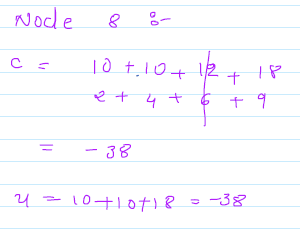 Node 8 :-
c = 10 + 10 + 12 + 18
2 + 4 + 6 + 9
= - 38
u = 10+10+18 = -38